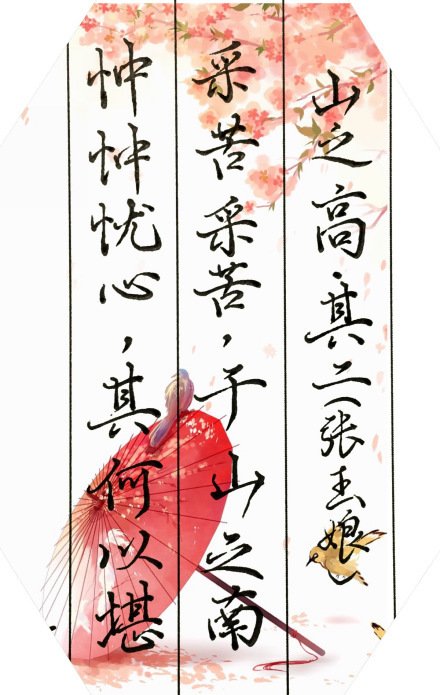 山之高·其二(张玉娘)
采苦采苦，于山之南
忡忡忧心，其何以堪